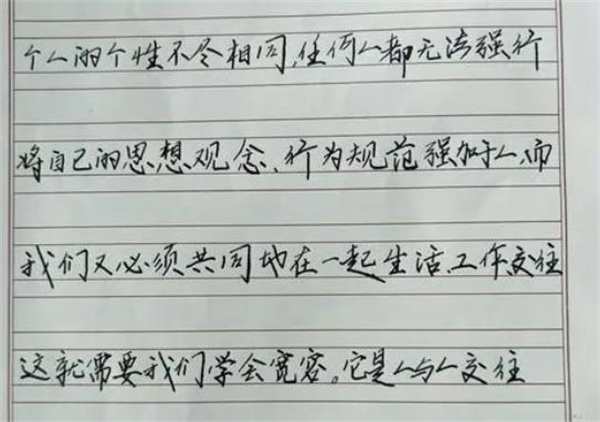 个人的个性不尽相同,任何人都无法强行
将自己的思想观念、行为规范强加于人,而
我们又必须共同地在一起生活、工作、交往
这就需要我们学会宽容。它是人与人交往